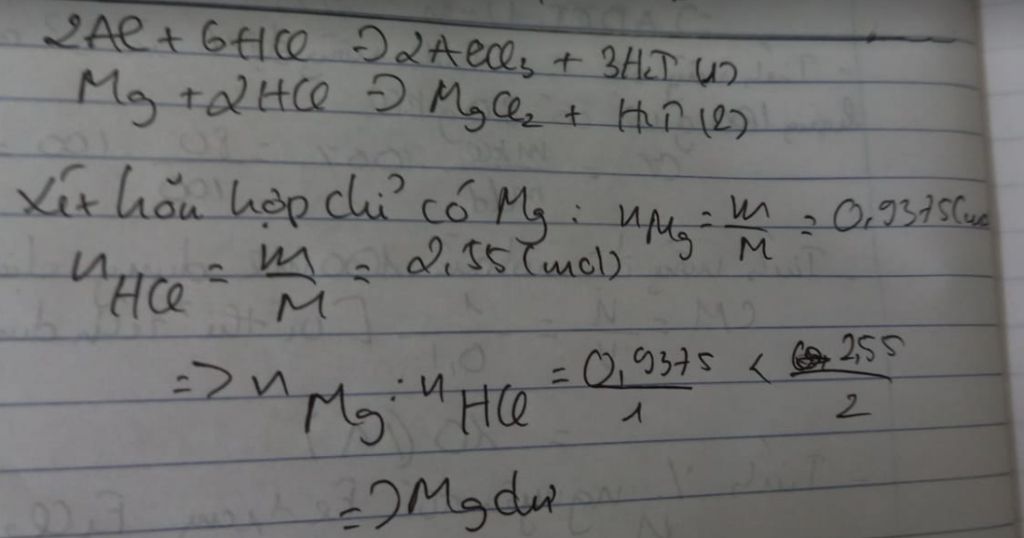 2Al + 6HCl => 2AlCl3 + 3H2↑ (1)
Mg + 2HCl => MgCl2 + H2↑ (2)
Xét hỗn hợp chỉ có Mg : nMg = m/M = 0,9375(mol
nHCl = m/M = 2,55 (mol)
=> nMg : nHCl = 0,9375/1 < 2,55/2
=> Mg dư